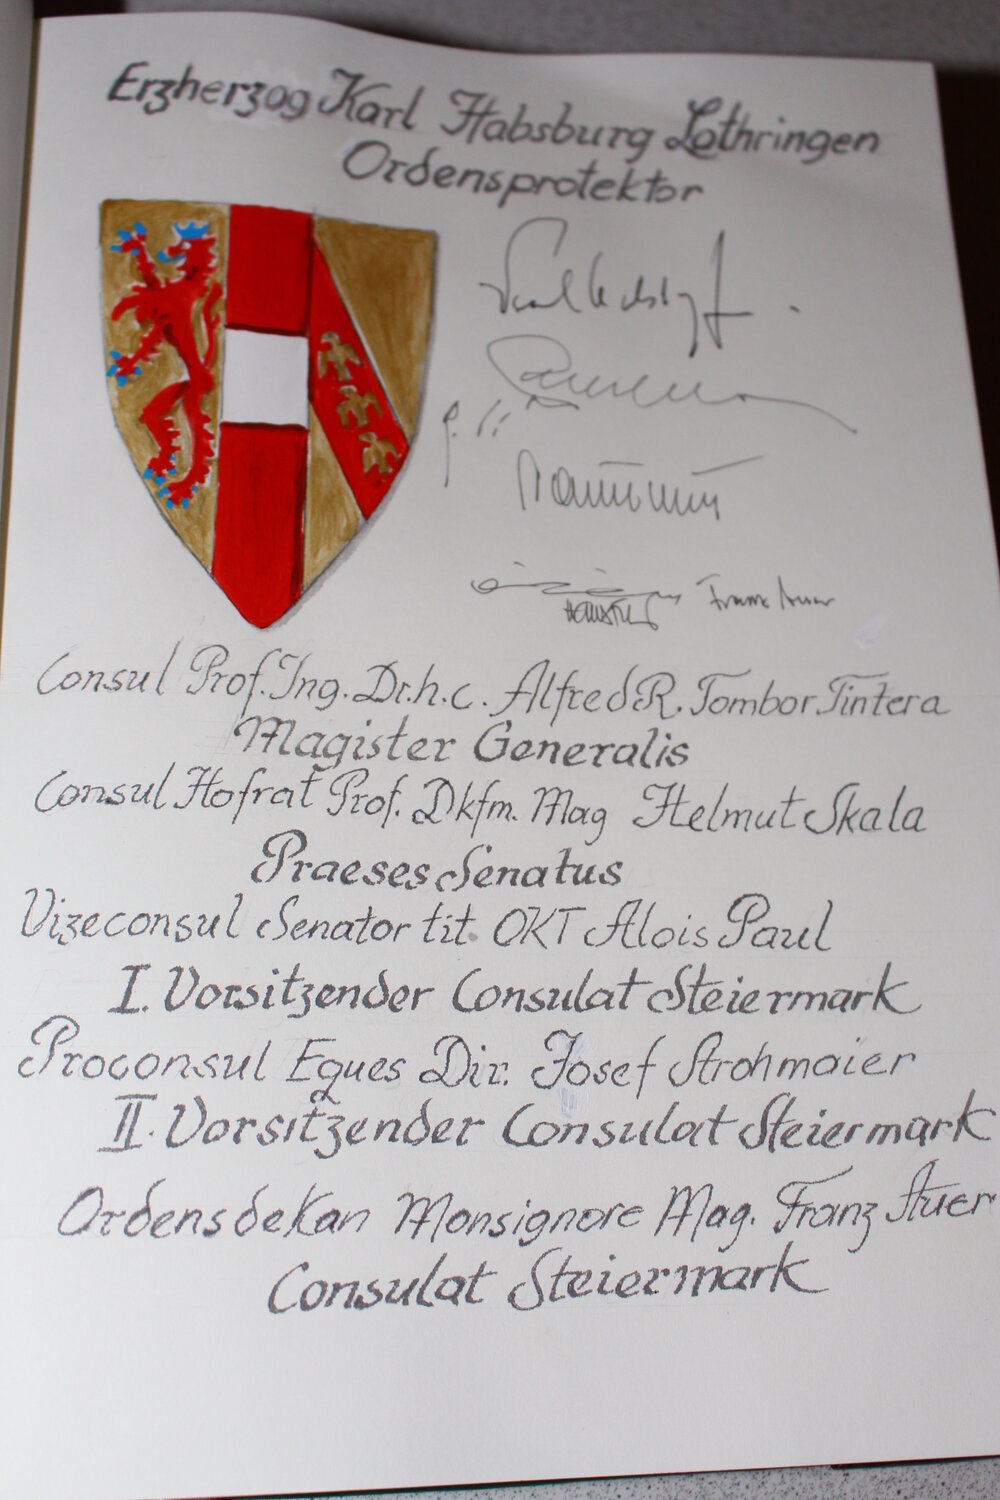 Erzherzog Karl Habsburg Lothringen
Ordensprotektor
Franz Auer
Consul Prof. Ing. Dr. h. c. Alfred R. Tombor Tintera
Magister Generalis
Consul Hofrat Prof. Dkfm. Mag Helmut Skala
Praeses Senatus
Vizeconsul Senator tit. OKT Alois Paul
I. Vorsitzender Consulat Steiermark
Proconsul Eques Dir. Josef Strohmaier
II. Vorsitzender Consulat Steiermark
Ordensdekan Monsignore Mag. Franz Auer
Consulat Steiermark